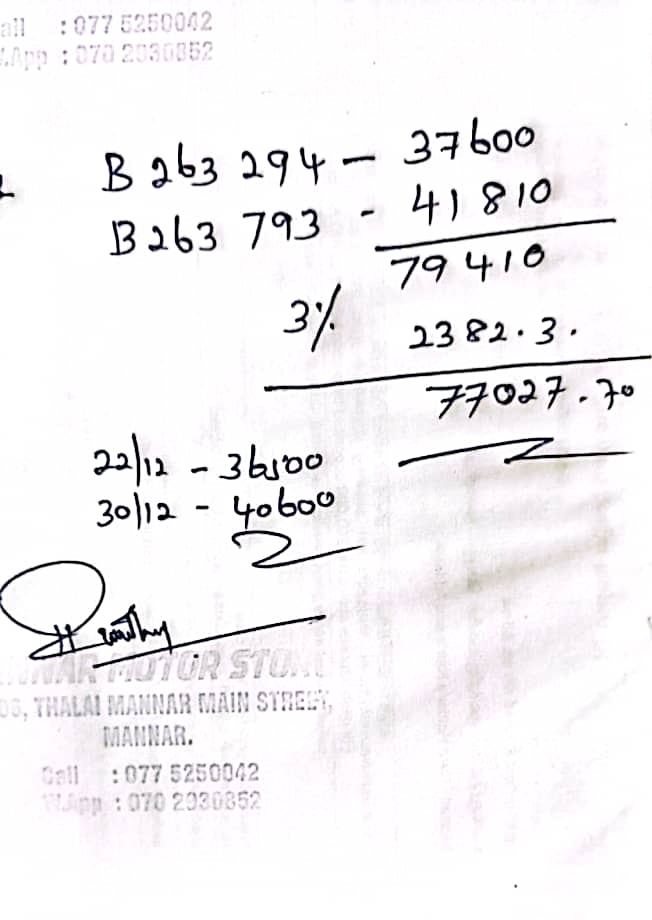 all : 077 5250042
.App : 070 2030852
B 263 294 - 37600
B 263 793 - 41810
79410
3% 2382.3.
77027.70
22/12 - 36500
30/12 - 40600
NNAR MOTOR STO
THALAI MANNAR MAIN STREET,
MANNAR.
Call : 077 5250042
W.App : 070 2030852